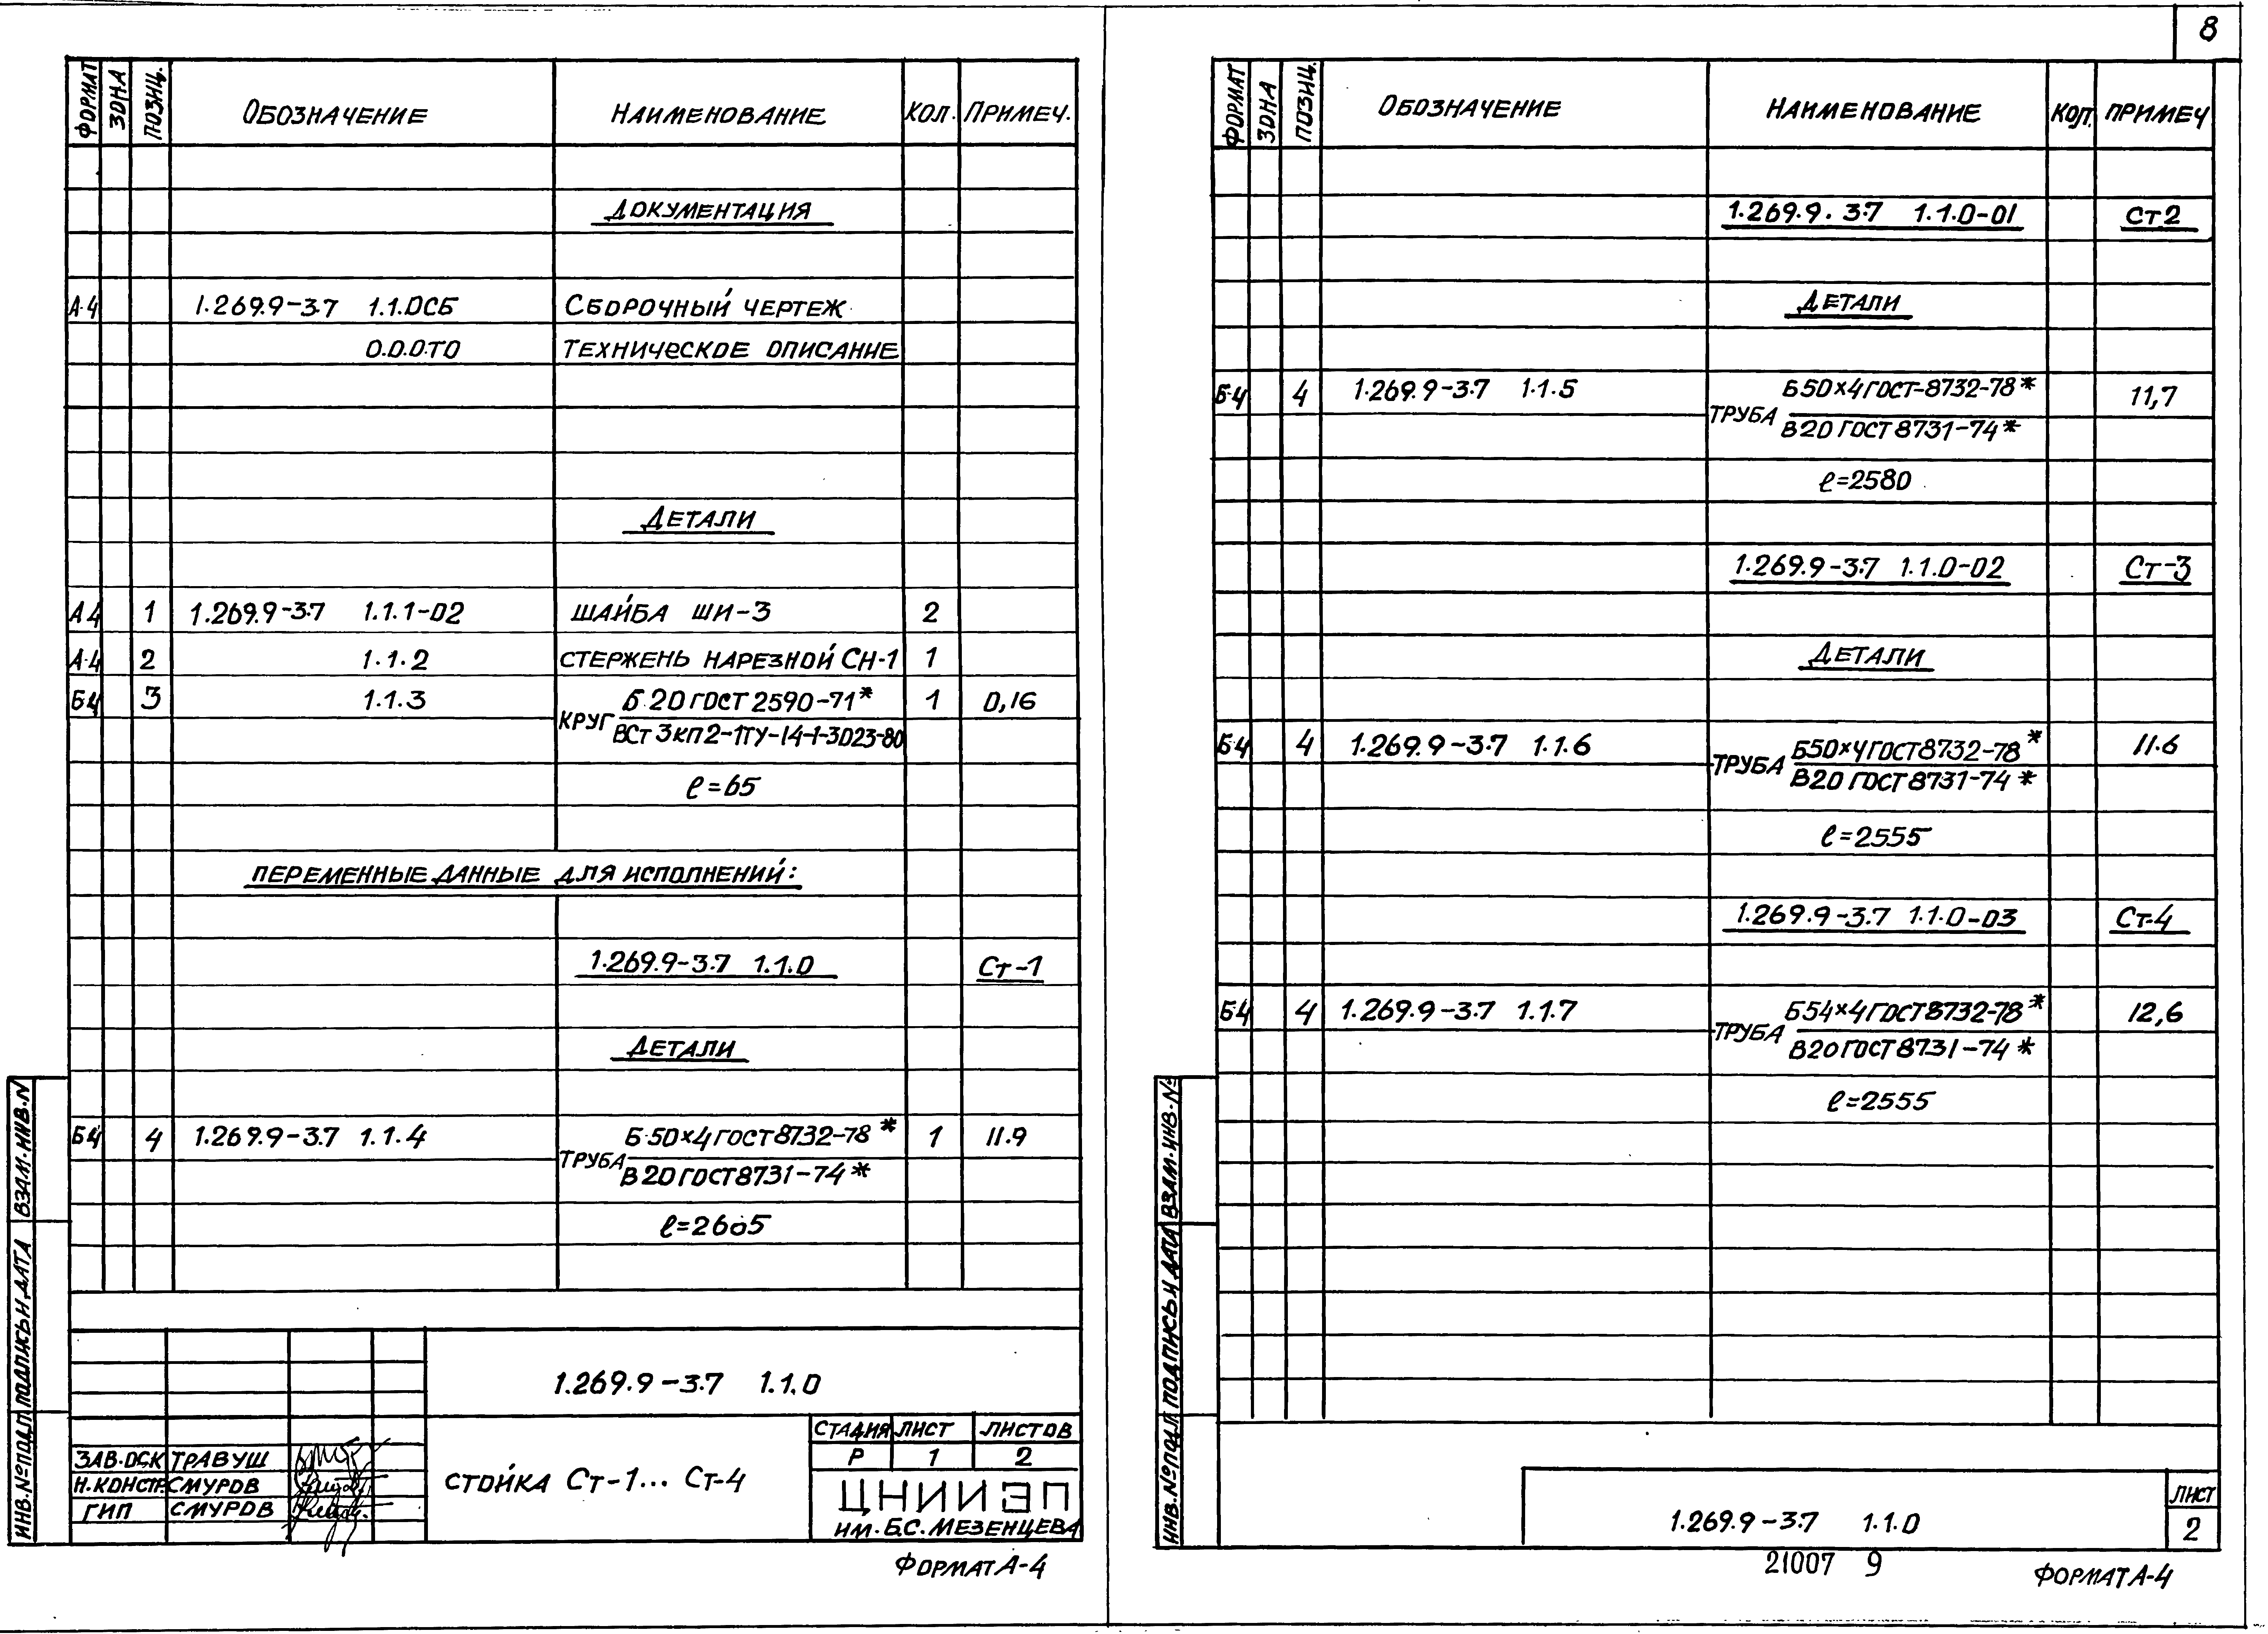 8
ФОРМАТ ЗОНА ПОЗИЦ. ОБОЗНАЧЕНИЕ НАИМЕНОВАНИЕ КОЛ. ПРИМЕЧ.
ДОКУМЕНТАЦИЯ
А-4 1.269.9-3.7 1.1.0СБ СБОРОЧНЫЙ ЧЕРТЕЖ
0.0.0.ТО ТЕХНИЧЕСКОЕ ОПИСАНИЕ
ДЕТАЛИ
А4 1 1.269.9-3.7 1.1.1-02 ШАЙБА ШИ-3 2
А-4 2 1.1.2 СТЕРЖЕНЬ НАРЕЗНОЙ СН-1 1
Б4 3 1.1.3 Б.20 ГОСТ 2590-71* 1 0,16
КРУГ
ВСт 3кп2-1ТУ-14-1-3023-80
ℓ=65
ПЕРЕМЕННЫЕ ДАННЫЕ ДЛЯ ИСПОЛНЕНИЙ:
1.269.9-3.7 1.1.0 Ст-1
ДЕТАЛИ
Б4 4 1.269.9-3.7 1.1.4 Б-50×4 ГОСТ 8732-78* 1 11.9
ТРУБА
В20 ГОСТ 8731-74*
ℓ=2605
1.269.9-3.7 1.1.0
СТАДИЯ ЛИСТ ЛИСТОВ
Р 1 2
ЗАВ.ОСК ТРАВУШ
Н.КОНСТР. СМУРОВ
ГИП СМУРОВ
СТОЙКА Ст-1... Ст-4
ЦНИИЭП
ИМ. Б.С. МЕЗЕНЦЕВА
ИНВ.№ПОДЛ ПОДПИСЬ И ДАТА ВЗАМ.ИНВ.N
ФОРМАТ А-4
ФОРМАТ ЗОНА ПОЗИЦ. ОБОЗНАЧЕНИЕ НАИМЕНОВАНИЕ КОЛ. ПРИМЕЧ
1.269.9.3.7 1.1.0-01 Ст2
ДЕТАЛИ
Б-4 4 1.269.9-3.7 1.1.5 Б50×4 ГОСТ-8732-78* 11,7
ТРУБА
В20 ГОСТ 8731-74*
ℓ=2580
1.269.9-3.7 1.1.0-02 Ст-3
ДЕТАЛИ
Б4 4 1.269.9-3.7 1.1.6 Б50×4 ГОСТ 8732-78* 11.6
ТРУБА
В20 ГОСТ 8731-74*
ℓ=2555
1.269.9-3.7 1.1.0-03 Ст-4
Б4 4 1.269.9-3.7 1.1.7 Б54×4 ГОСТ 8732-78* 12,6
ТРУБА
В20 ГОСТ 8731-74*
ℓ=2555
ИНВ.№ПОДЛ ПОДПИСЬ И ДАТА ВЗАМ.ИНВ.№
1.269.9-3.7 1.1.0
ЛИСТ
2
21007 9
ФОРМАТ А-4